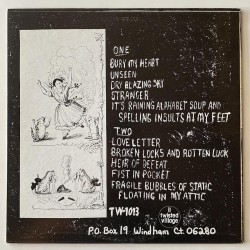 ONE
BURY MY HEART
UNSEEN
DRY BLAZING SKY
STRANGER
IT'S RAINING ALPHABET SOUP AND
SPELLING INSULTS AT MY FEET
TWO
LOVE LETTER
BROKEN LOCKS AND ROTTEN LUCK
HEIR OF DEFEAT
FIST IN POCKET
FRAGILE BUBBLES OF STATIC
FLOATING IN MY ATTIC
TW-1013
twisted
village
P.O. Box 19 Windham Ct. 06280